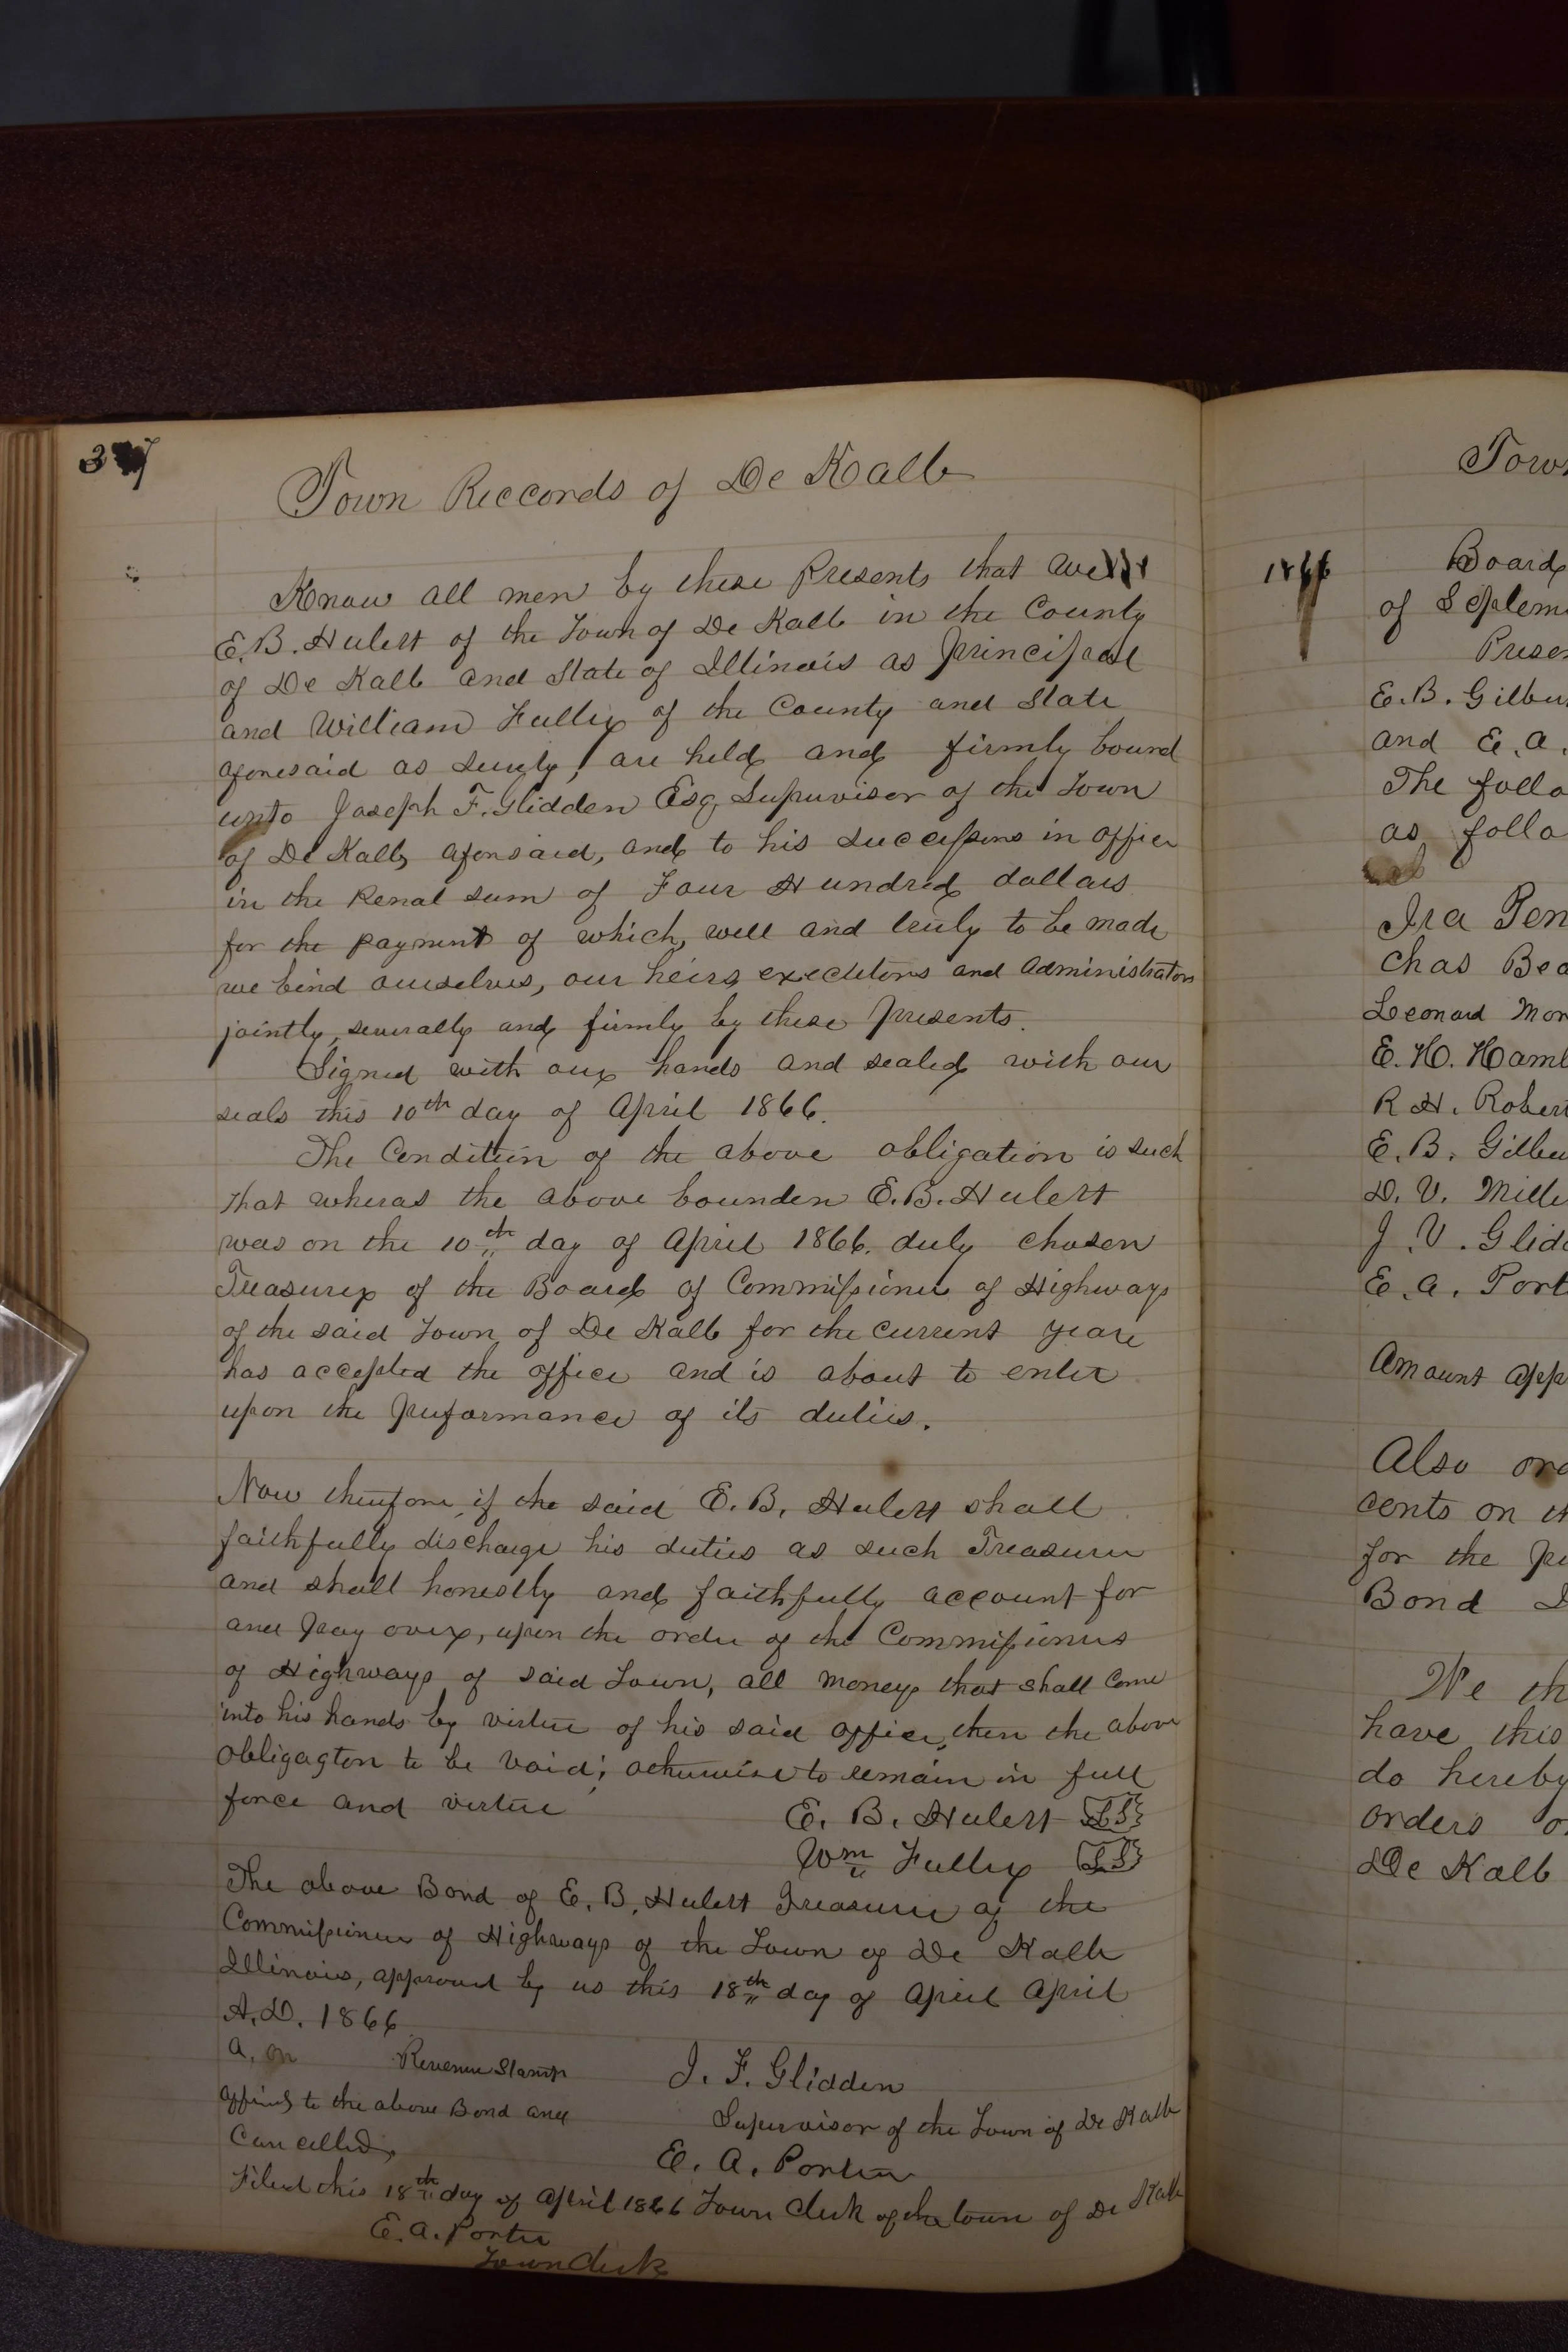 Town Reccords of De Kalb
Know all men by these Presents that we
E. B. Hulert of the Town of De Kalb in the County
of De Kalb and State of Illinois as Principal
and William Fuller of the County and State
aforesaid as Surety, are held and firmly bound
unto Joseph F. Glidden Esq, Supervisor of the Town
of De Kalb, aforesaid, and to his successors in office
in the Penal sum of Four Hundred dollars
for the payment of which, well and truly to be made
we bind ourselves, our heirs, executors and administrators
jointly, severally and firmly by these Presents.
Signed with our hands and sealed with our
seals this 10th day of April 1866.
The Condition of the above obligation is such
that wheras the above bounden E. B. Hulert
was on the 10th day of April 1866. duly chosen
Treasurer of the Board of Commissioners of Highways
of the said Town of De Kalb for the current year
has accepted the office and is about to enter
upon the Performance of its duties.
Now therefore, if the said E. B. Hulert shall
faithfully discharge his duties as such Treasurer
and shall honestly and faithfully account for
and Pay over, upon the order of the Commissioners
of Highways of said Town, all moneys that shall come
into his hands by virtue of his said office, then the above
obligagton to be void; otherwise to remain in full
force and virtue
E. B. Hulert LS
Wm Fuller LS
The above Bond of E. B. Hulert Treasurer of the
Commissioners of Highways of the Town of De Kalb
Illinois, approved by us this 18th day of April April
A.D. 1866
a. on Revenue Stamp
affixed to the above Bond and
Cancelled,
J. F. Glidden
Supervisor of the Town of De Kalb
E. A. Porter
Town Clerk of the town of De Kalb
Filed this 18th day of April 1866
E. A. Porter
Town Clerk
Town
1866
Board
of Septem
Presen
E. B. Gilbu
and E. A.
The follo
as follo
Ira Pen
Chas Bea
Leonard Mor
E. H. Haml
R H. Robert
E. B. Gilbu
D. V. Mille
J. V. Glid
E. A. Port
Amount app
Also ord
cents on th
for the pu
Bond
We th
have this
do hereby
orders o
De Kalb